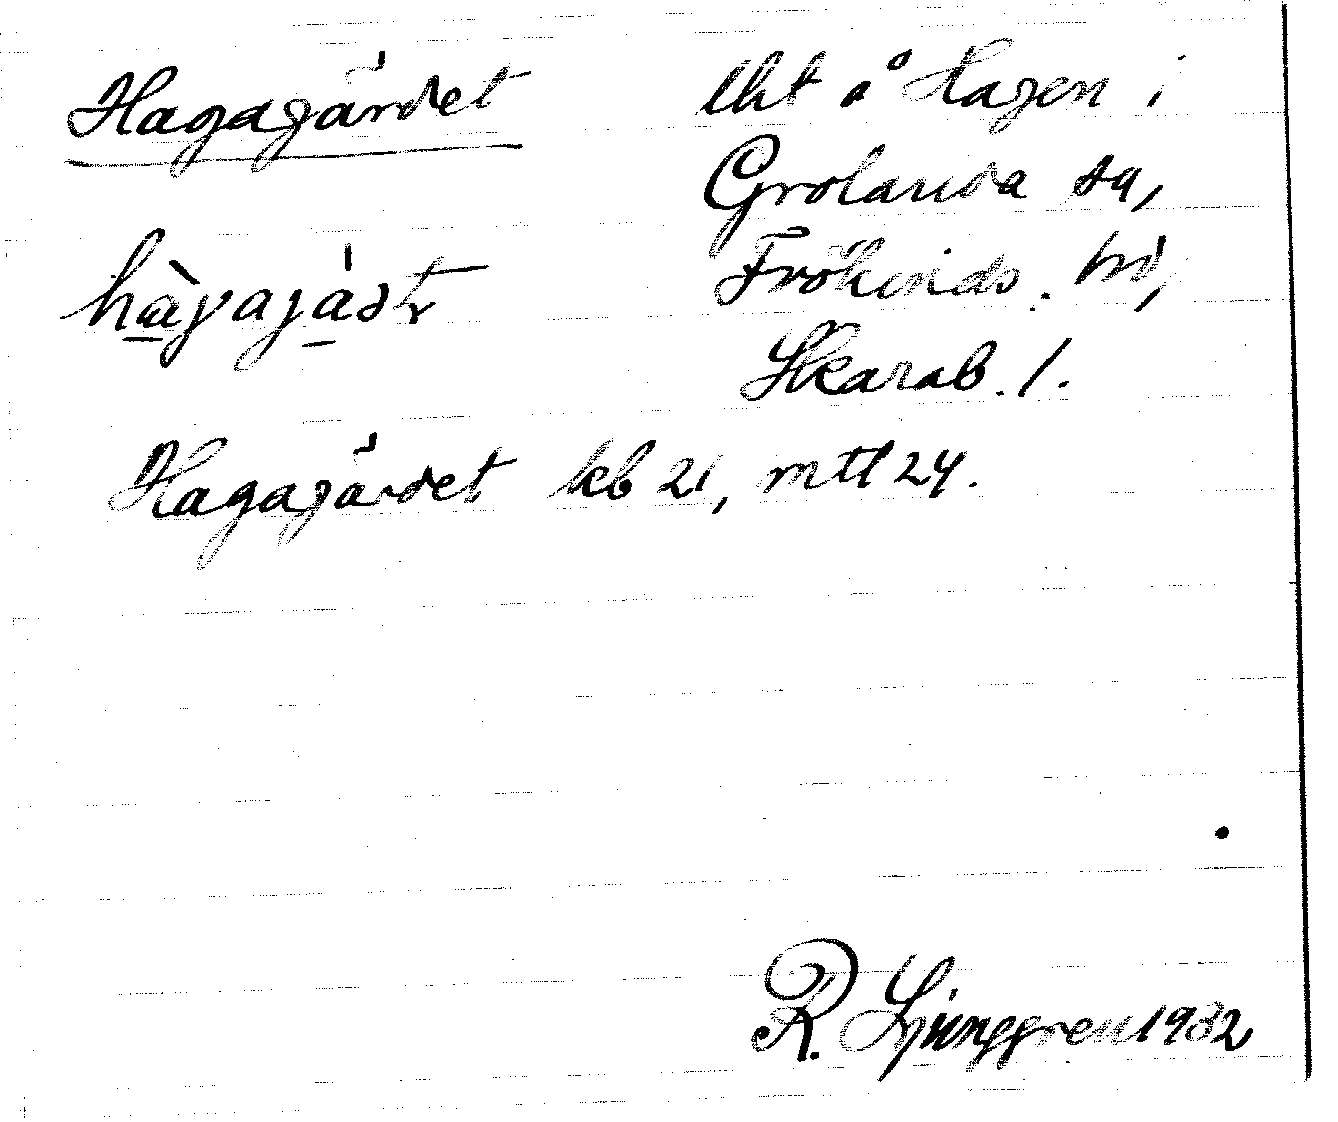 Hagagärdet
lht å Hagen i
Grolanda sn,
Frökinds. hd,
Skarab. l.
Hagagärdet kb 21, mtl 24.
R. Ljunggren 1932